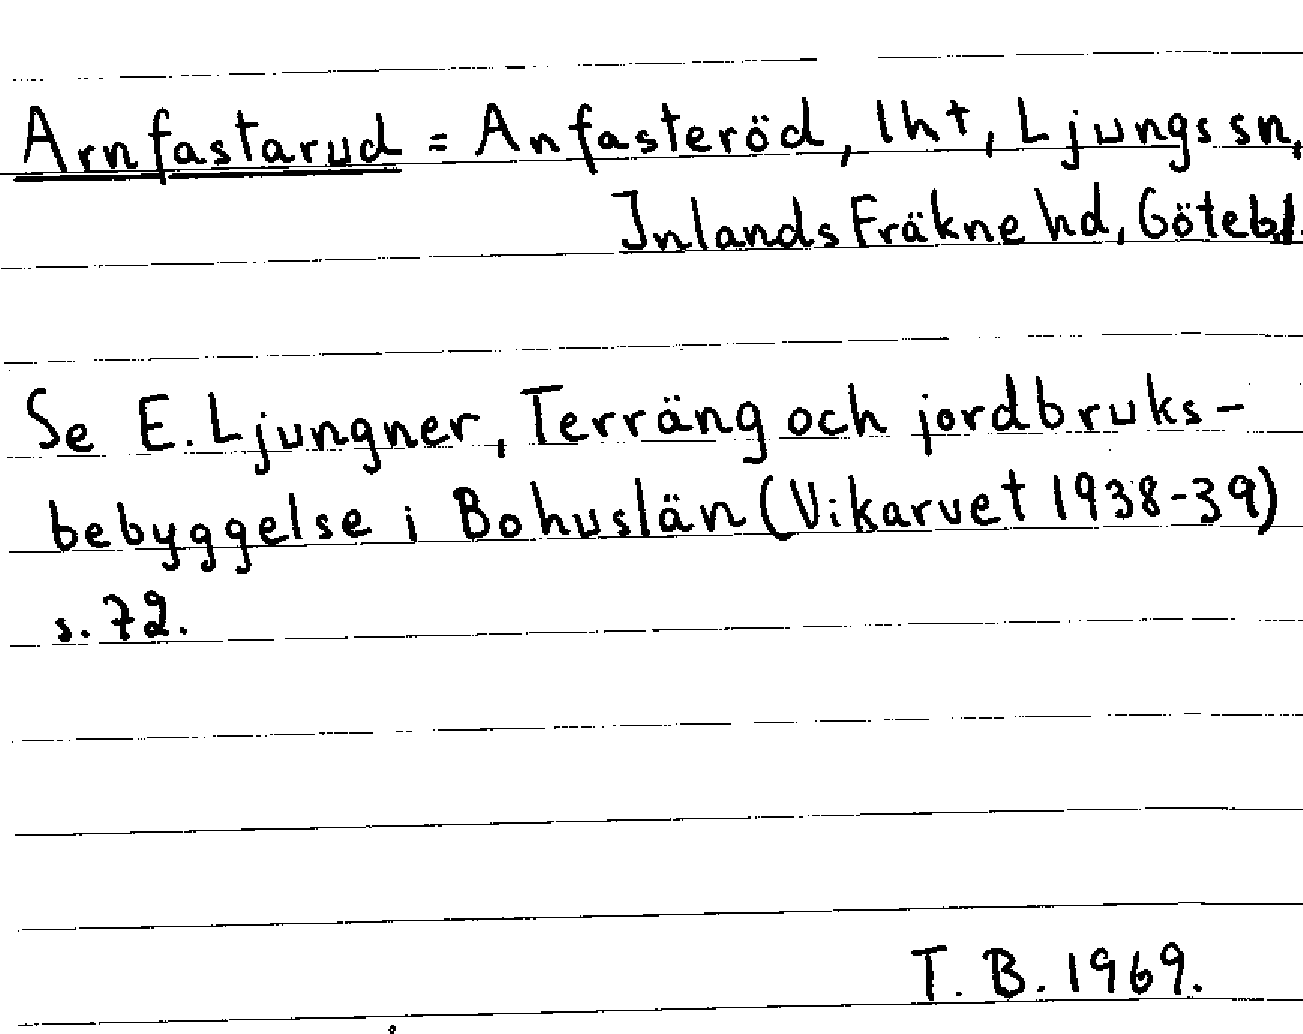 Arnfastarud = Anfasteröd, lht, Ljungs sn,
Inlands Fräkne hd, Götebl.
Se E. Ljungner, Terräng och jordbruks-
bebyggelse i Bohuslän (Vikarvet 1938-39)
s. 72.
T. B. 1969.